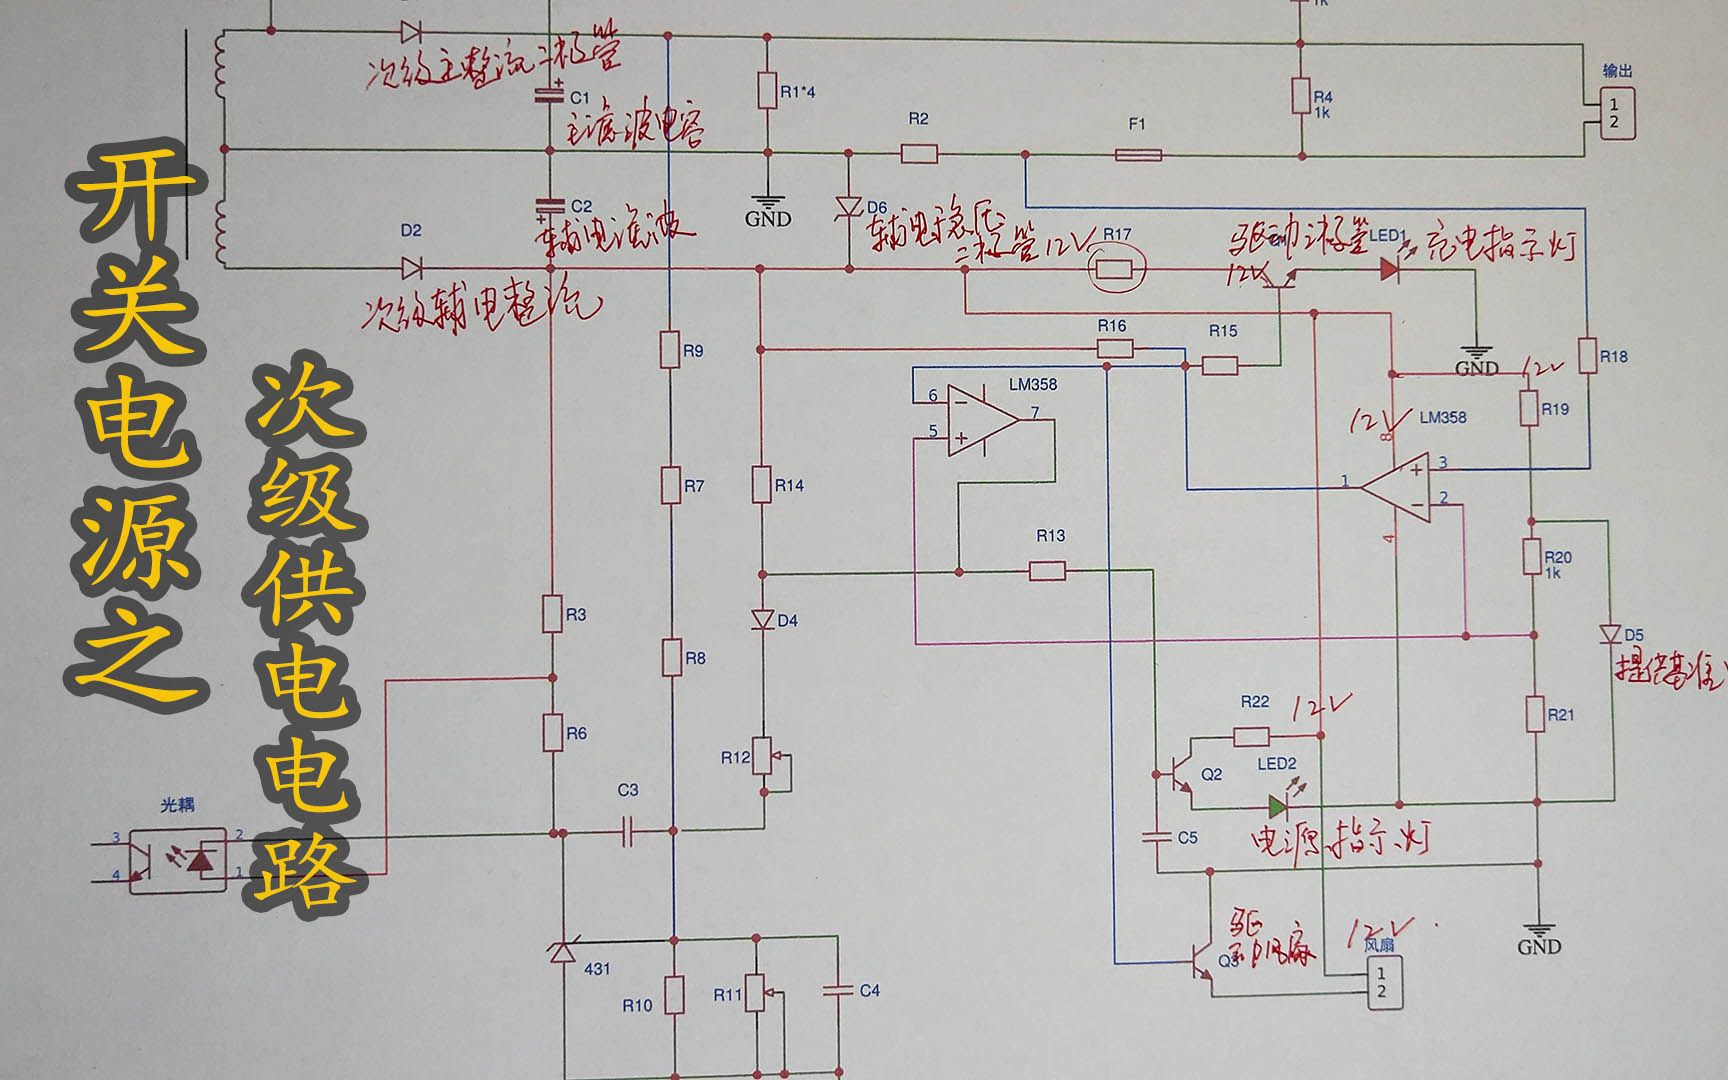 开关电源之
次级供电电路
1k
次级主整流二极管
C1
主滤波电容
R1*4
R2
F1
R4
1k
输出
1
2
C2
辅电滤波
GND
D6
辅电稳压
二极管12V
D2
次级辅电整流
R17
驱动三极管
12V
LED1
充电指示灯
GND
R16
R15
R18
R9
LM358
6
5
7
12V
R19
12V
LM358
8
3
2
1
4
R7
R14
R13
R20
1k
R3
D4
D5
提供基准
R8
R6
R12
R22
12V
R21
Q2
LED2
电源指示灯
C3
C5
光耦
3
4
2
1
431
R10
R11
C4
驱
动风扇
Q3
12V
风扇
1
2
GND